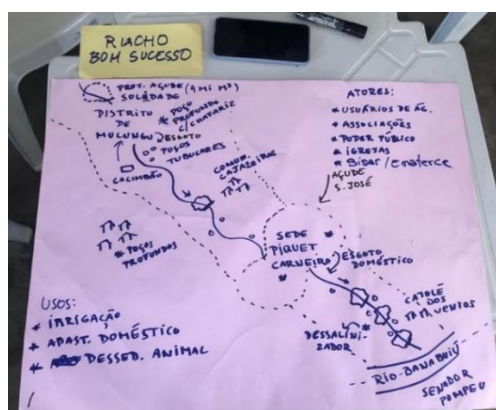 RIACHO
BOM SUCESSO
PROJ. AÇUDE (4 MI M³)
SOLEDADE
DISTRITO
DE
MULUNGU
* POÇO
PROFUNDO
C/ CHAFARIZ
ESGOTO
POÇOS
TUBULARES
CACIMBÃO
COMUN.
CAJAZEIRAS
* POÇOS
PROFUNDOS
ATORES:
* USUÁRIOS DE ÁG.
* ASSOCIAÇÕES
* PODER PÚBLICO
* IGREJAS
* SISAR / EMATERCE
AÇUDE
S. JOSÉ
SEDE
PIQUET
CARNEIRO
ESGOTO
DOMÉSTICO
CATOLÉ
DOS
VENTOS
DESSALINI-
ZADOR
RIO-BANABUIÚ
SENADOR
POMPEU
USOS:
* IRRIGAÇÃO
* ABAST. DOMÉSTICO
* DESSED. ANIMAL